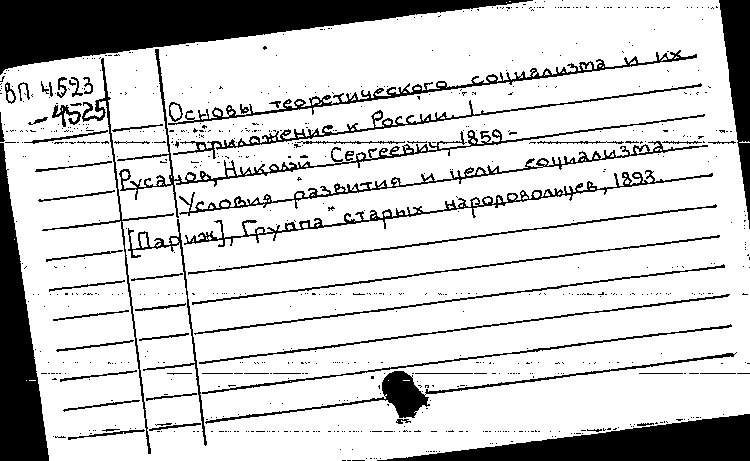 ВП. 4523
– 4525
Основы теоретического социализма и их
приложение к России. I.
Русанов, Николай Сергеевич, 1859 -
Условия развития и цели социализма.
[Париж], Группа "старых народовольцев, 1893.